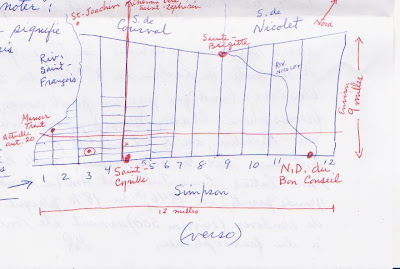 noter :
St-Joachim
S. de
Courval
S. de
Nicolet
Sainte-
Brigitte
Riv.
Saint-
François
RIV.
NICOLET
Environ
9 milles
Manoir
Trent
Actuelle
aut. 20
1 2 3 4 5 6 7 8 9 10 11 12
Saint-
Cyrille
N.D. du
Bon Conseil
Simpson
12 milles
(verso)